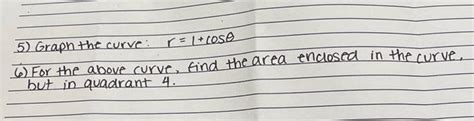 5) Graph the curve: r = 1 + cosθ
6) For the above curve, find the area enclosed in the curve,
but in quadrant 4.